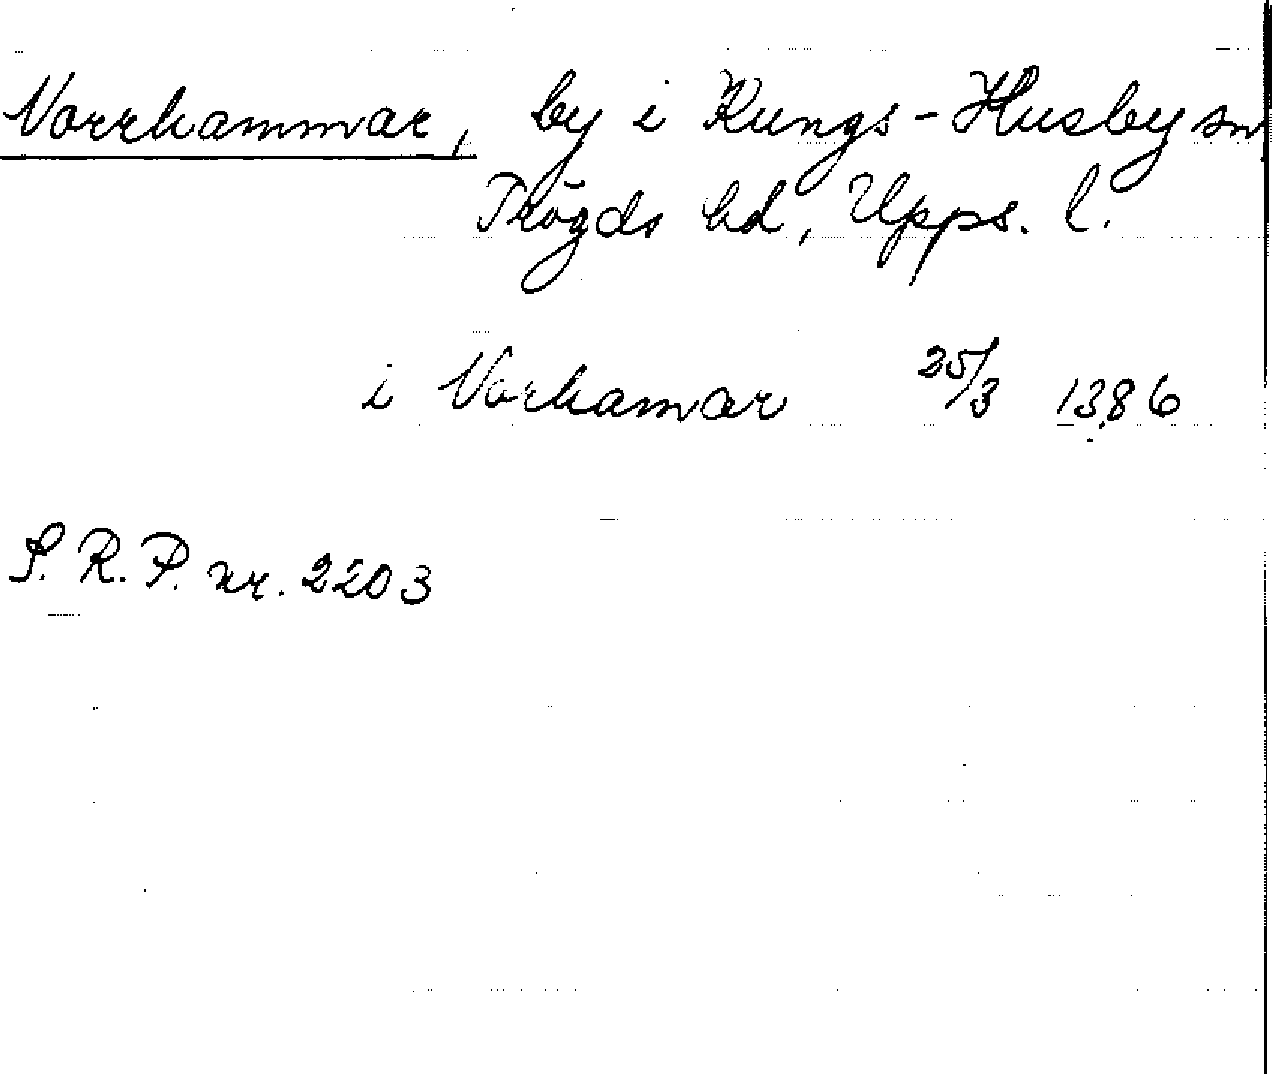 Vorrhammar, by i Kungs-Husby sn
Trögds hd, Upps. l.
i Vorhamar 25/3 1386
S. R. P. nr. 2203